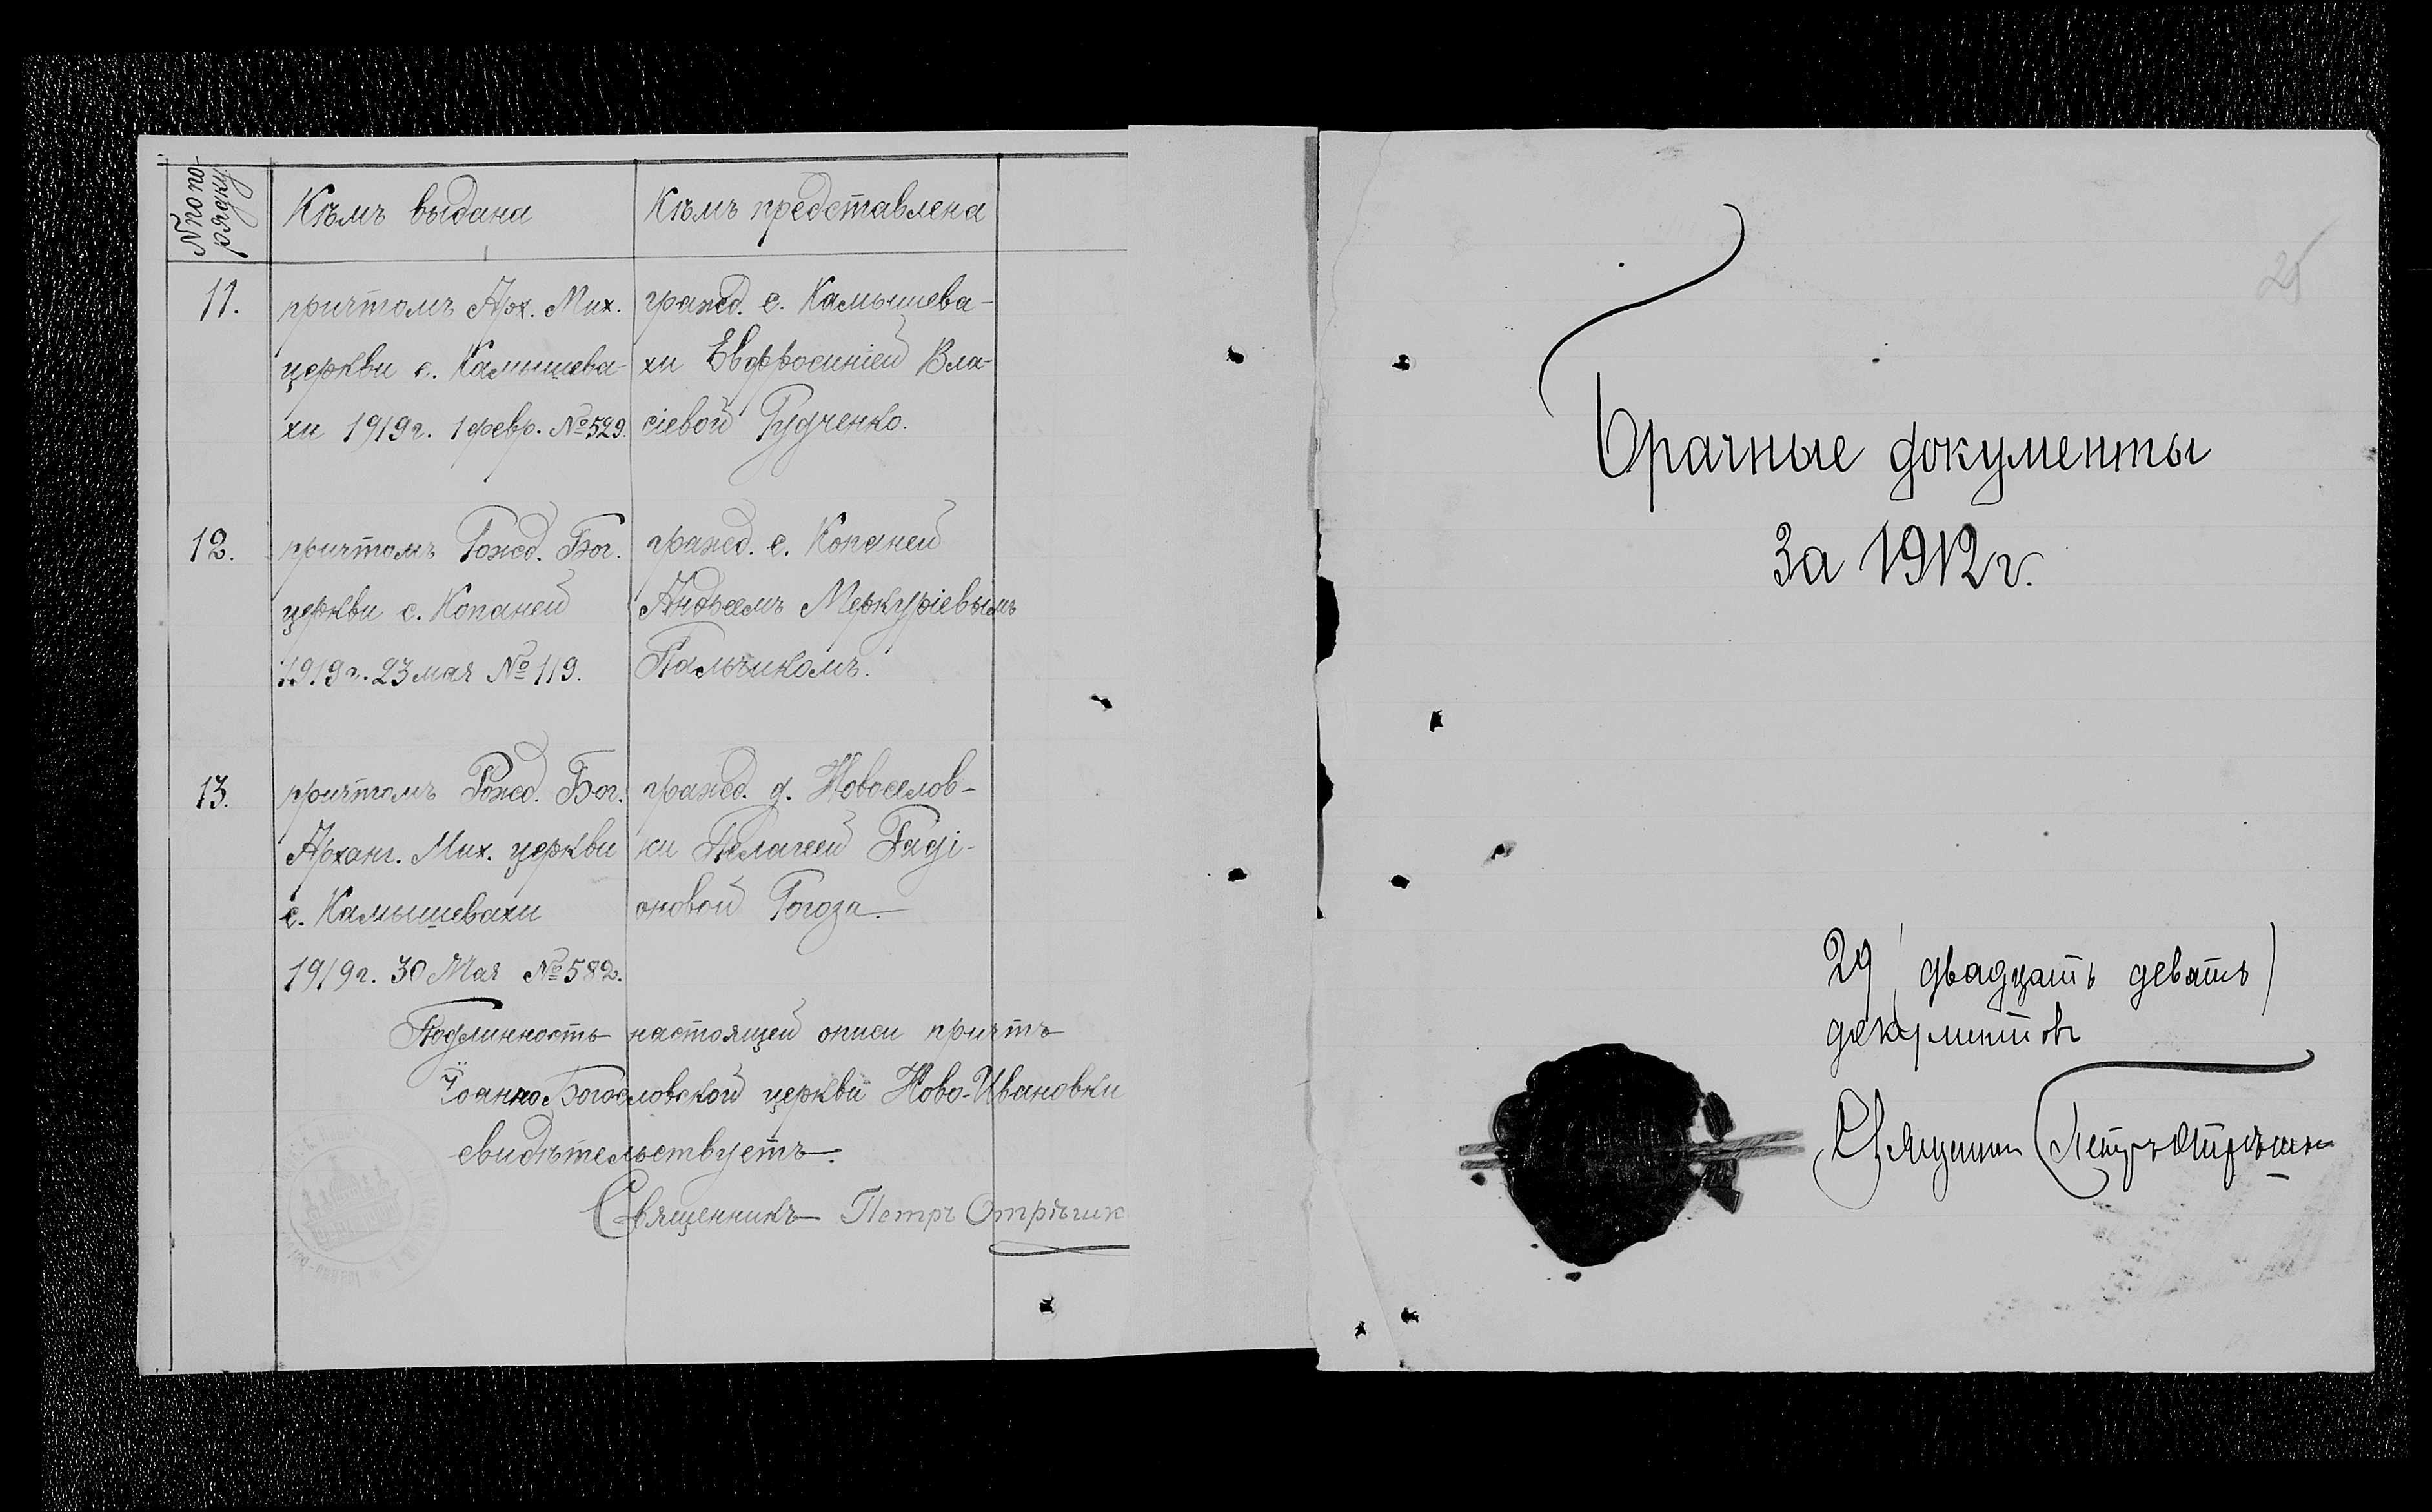 № по по-
рядку
Кѣмъ выдана
Кѣмъ представлена
11.
причтомъ Арх. Мих.
церкви с. Камышева-
хи 1919г. 1 февр. №529.
гражд. с. Камышева-
хи Евфросиніей Вла-
сіевой Рудченко.
12.
причтомъ Рожд. Бог.
церкви с. Копаней
1919г. 23 мая № 119.
гражд. с. Копаней
Андреемъ Меркуріевымъ
Пальчикомъ.
13.
причтомъ Рожд. Бог.
Арханг. Мих. церкви
с. Камышевахи
1919г. 30 Мая №582.
гражд. д. Новоселов-
ки Пелагеей Радi-
оновой Рогоза
Подлинность настоящей описи причтъ
Іоанно-Богословской церкви Ново-Ивановки
свидѣтельствуетъ.
Священникъ Петръ Отрѣшк
25
Брачные документы
За 1912 г.
29 (двадцать девять)
документовъ
Священникъ Петръ